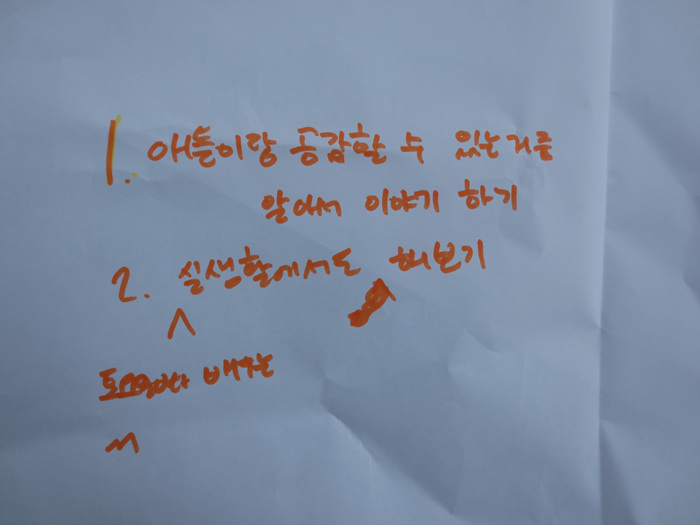 1. 애들이랑 공감할 수 있는거를
알아서 이야기 하기
2. 실생활에서도 해보기
배우는